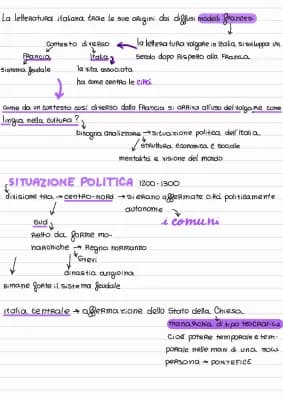 La letteratura italiana trae le sue origini dai diffusi modelli francesi
contesto diverso → la letteratura volgare in Italia si sviluppa un
Francia Italia secolo dopo rispetto alla Francia
sistema feudale la vita associata
ha come centro le città
come da un contesto così diverso dalla Francia si arriva all'uso del volgare come
lingua nella cultura?
bisogna analizzare → situazione politica dell'Italia
struttura economica e sociale
mentalità e visione del mondo
SITUAZIONE POLITICA 1200-1300
divisione tra → centro-nord → si erano affermate città politicamente
autonome
sud i comuni
retto da forme mo-
narchiche → Regno normanno
Svevi
dinastia angioina
rimane forte il sistema feudale
Italia centrale → affermazione dello Stato della Chiesa
monarchia di tipo teocratico
cioè potere temporale e tem-
porale nelle mani di una sola
persona → PONTEFICE